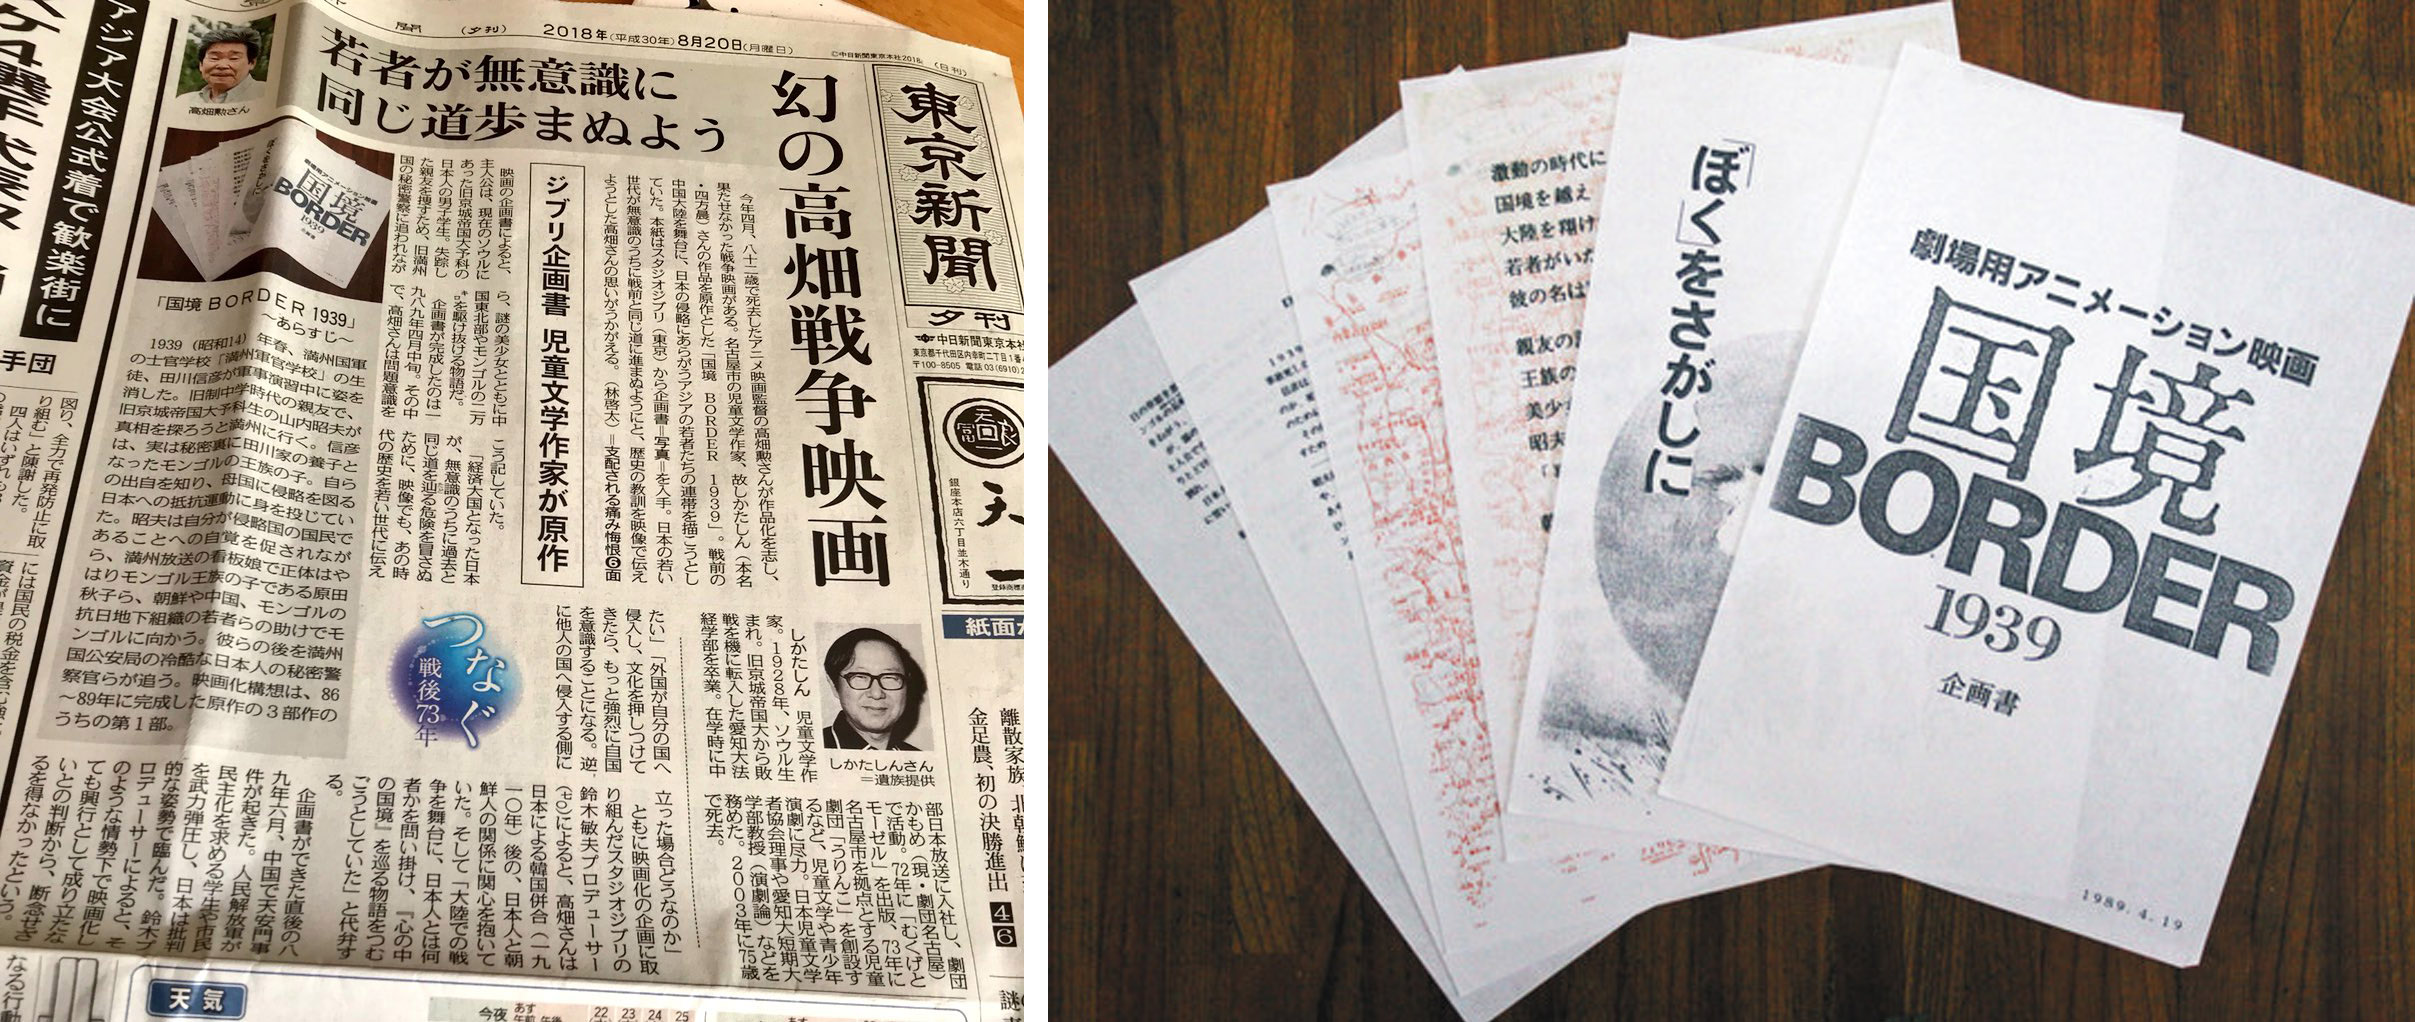 （夕刊） 2018年（平成30年）8月20日（月曜日）
（日刊）
東京新聞
夕刊
中日新聞東京本社
幻の高畑戦争映画
若者が無意識に
同じ道歩まぬよう
ジブリ企画書 児童文学作家が原作
高畑勲さん
今年四月、八十二歳で死去したアニメ映画監督の高畑勲さんが作品化を志し、
果たせなかった戦争映画がある。名古屋市の児童文学作家、故しかたしん（本名
・四方晨）さんの作品を原作とした「国境 BORDER 1939」。戦前の
中国大陸を舞台に、日本の侵略にあらがうアジアの若者たちの連帯を描こうとし
ていた。本紙はスタジオジブリ（東京）から企画書＝写真＝を入手。日本の若い
世代が無意識のうちに戦前と同じ道に進まぬようにと、歴史の教訓を映像で伝え
ようとした高畑さんの思いがうかがえる。（林啓太）＝支配される痛み悔恨❻面
映画の企画書によると、
主人公は、現在のソウルに
あった旧京城帝国大予科の
日本人の男子学生。失踪し
た親友を捜すため、旧満州
国の秘密警察に追われなが
ら、謎の美少女とともに中
国東北部やモンゴルの二万
㌔を駆け抜ける物語だ。
企画書が完成したのは一
九八九年四月中旬。その中
で、高畑さんは問題意識を
こう記していた。
「経済大国となった日本
が、無意識のうちに過去と
同じ道を辿る危険を冒さぬ
ために、映像でも、あの時
代の歴史を若い世代に伝え
たい」「外国が自分の国へ
侵入し、文化を押しつけて
きたら、もっと強烈に自国
を意識することになる。逆
に他人の国へ侵入する側に
立った場合どうなのか」
ともに映画化の企画に取
り組んだスタジオジブリの
鈴木敏夫プロデューサー
（七〇）によると、高畑さんは
日本による韓国併合（一九
一〇年）後の、日本人と朝
鮮人の関係に関心を抱いて
いた。そして「大陸での戦
争を舞台に、日本人とは何
者かを問い掛け、『心の中
の国境』を巡る物語をつむ
ごうとしていた」と代弁す
る。
企画書ができた直後の八
九年六月、中国で天安門事
件が起きた。人民解放軍が
民主化を求める学生や市民
を武力弾圧し、日本は批判
的な姿勢で臨んだ。鈴木プ
ロデューサーによると、そ
のような情勢下で映画化し
ても興行として成り立たな
いとの判断から、断念せざ
るを得なかったという。
「国境BORDER 1939」
～あらすじ～
1939（昭和14）年春、満州国軍
の士官学校「満州軍官学校」の生
徒、田川信彦が軍事演習中に姿を
消した。旧制中学時代の親友で、
旧京城帝国大予科生の山内昭夫が
真相を探ろうと満州に行く。信彦
は、実は秘密裏に田川家の養子と
なったモンゴルの王族の子。自ら
の出自を知り、母国に侵略を図る
日本への抵抗運動に身を投じてい
た。昭夫は自分が侵略国の国民で
あることへの自覚を促されなが
ら、満州放送の看板娘で正体はや
はりモンゴル王族の子である原田
秋子ら、朝鮮や中国、モンゴルの
抗日地下組織の若者らの助けでモ
ンゴルに向かう。彼らの後を満州
国公安局の冷酷な日本人の秘密警
察官らが追う。映画化構想は、86
～89年に完成した原作の3部作の
うちの第1部。
つなぐ
戦後73年
しかたしんさん
＝遺族提供
しかたしん 児童文学作
家。1928年、ソウル生
まれ。旧京城帝国大から敗
戦を機に転入した愛知大法
経学部を卒業。在学時に中
部日本放送に入社し、劇団
かもめ（現・劇団名古屋）
で活動。72年に「むくげと
モーゼル」を出版、73年に
名古屋市を拠点とする児童
劇団「うりんこ」を創設す
るなど、児童文学や青少年
演劇に尽力。日本児童文学
者協会理事や愛知大短期大
学部教授（演劇論）などを
務めた。2003年に75歳
で死去。
アジア大会公式着で歓楽街に
手団
紙面か
金足農、初の決勝進出 4 6
離散家族
銀座本店六丁目並木通り
天気
今夜
22 23 24 25
劇場用アニメーション映画
国境
BORDER
1939
企画書
1989.4.19
「ぼく」をさがしに
激動の時代に
国境を越え
大陸を翔け
若者がいた
彼の名は
親友の
王族の
美少
昭夫